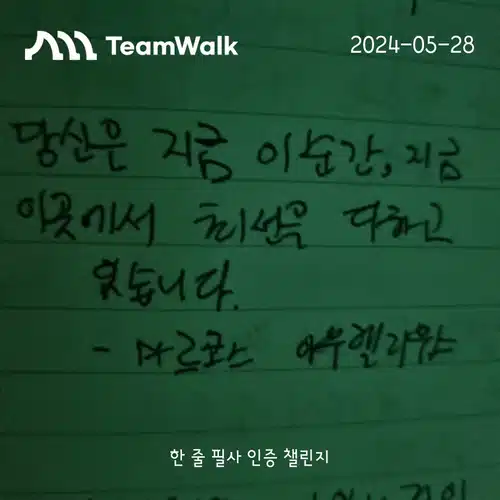 TeamWalk 2024-05-28
당신은 지금 이 순간, 지금
이곳에서 최선을 다하고
있습니다.
- 마르코스 아우렐리우스
한 줄 필사 인증 챌린지